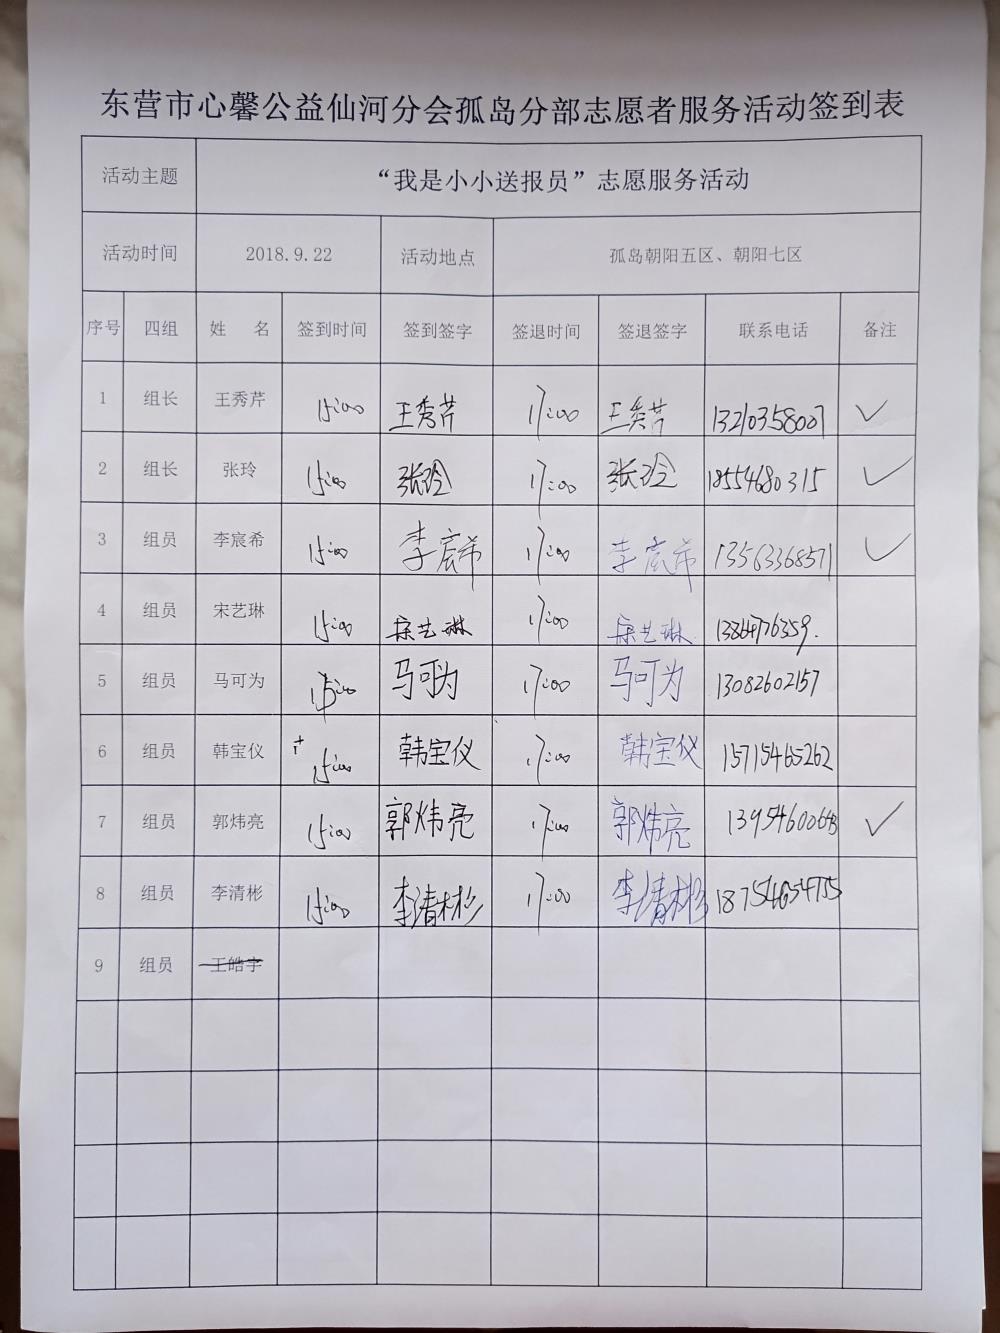 东营市心馨公益仙河分会孤岛分部志愿者服务活动签到表
活动主题 “我是小小送报员”志愿服务活动
活动时间 2018.9.22 活动地点 孤岛朝阳五区、朝阳七区
序号 四组 姓 名 签到时间 签到签字 签退时间 签退签字 联系电话 备注
1 组长 王秀芹 15:00 王秀芹 17:00 王秀芹 13210358007 ✓
2 组长 张玲 15:00 张玲 17:00 张玲 18554680315 ✓
3 组员 李宸希 15:00 李宸希 17:00 李宸希 13563368571 ✓
4 组员 宋艺琳 15:00 宋艺琳 17:00 宋艺琳
5 组员 马可为 15:00 马可为 17:00 马可为 13082602157
6 组员 韩宝仪 15:00 韩宝仪 17:00 韩宝仪 15715465262
7 组员 郭炜亮 15:00 郭炜亮 17:00 郭炜亮 ✓
8 组员 李清彬 15:00 李清彬 17:00 李清彬
9 组员 王皓宇